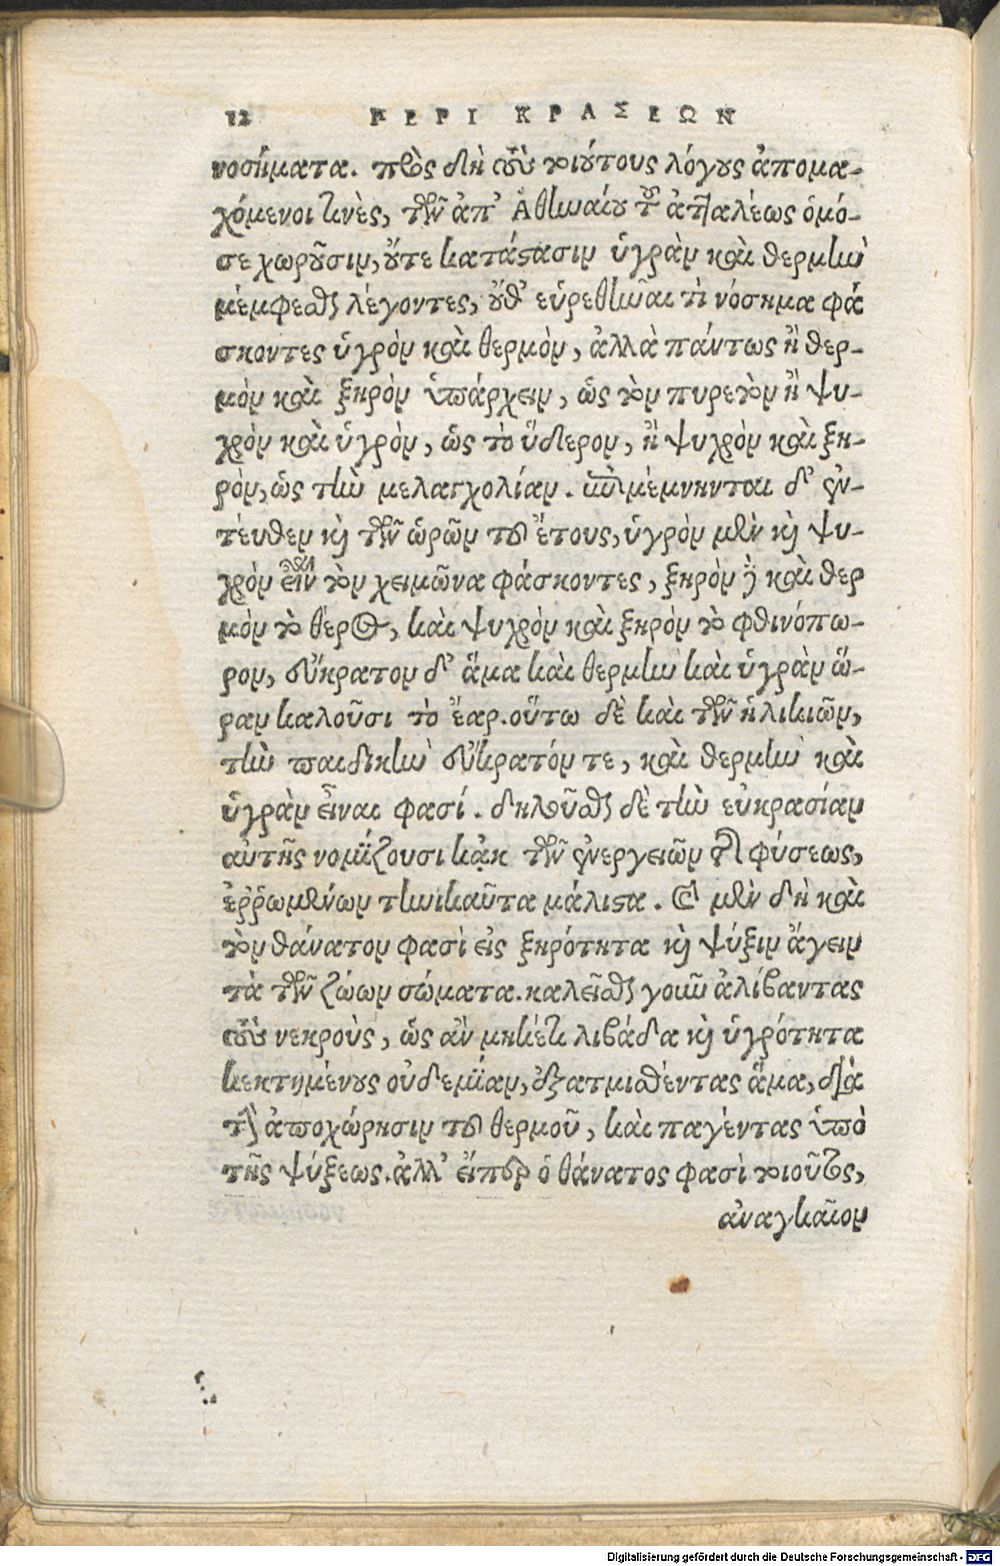 12 ΠΕΡΙ ΚΡΑΣΕΩΝ
νοσήματα. πρὸς δὴ τοὺς τοιούτους λόγους ἀπομα-
χόμενοι τινὲς, τῶν ἀπ᾽ Ἀθηναίου τοῦ ἀτταλέως ὁμό-
σε χωροῦσιν, οὔτε κατάστασιν ὑγρὰν καὶ θερμὴν
μέμφεσθαι λέγοντες, οὔθ᾽ εὑρεθῆναι τὶ νόσημα φά
σκοντες ὑγρὸν καὶ θερμὸν, ἀλλὰ πάντως ἢ θερ-
μὸν καὶ ξηρὸν ὑπάρχειν, ὡς τὸν πυρετὸν ἢ ψυ-
χρὸν καὶ ὑγρὸν, ὡς τὸ ὕδερον, ἢ ψυχρὸν καὶ ξη-
ρὸν, ὡς τὴν μελαγχολίαν. ἐπιμέμνηνται δ᾽ ἐν-
τεύθεν καὶ τῶν ὡρῶν τοῦ ἔτους, ὑγρὸν μὲν καὶ ψυ-
χρὸν εἶναι τὸν χειμῶνα φάσκοντες, ξηρὸν δὲ καὶ θερ
μὸν τὸ θέρος, καὶ ψυχρὸν καὶ ξηρὸν τὸ φθινόπω-
ρον, εὔκρατον δ᾽ ἅμα καὶ θερμὴν καὶ ὑγρὰν ὥ-
ραν καλοῦσι τὸ ἔαρ. οὕτω δὲ καὶ τῶν ἡλικιῶν,
τὴν παιδικὴν εὔκρατόν τε, καὶ θερμὴν καὶ
ὑγρὰν εἶναι φασί. δηλοῦσθαι δὲ τὴν εὐκρασίαν
αὐτῆς νομίζουσι κἀκ τῶν ἐνεργειῶν τῆς φύσεως,
ἐῤῥωμένων τηνικαῦτα μάλιστα. καὶ μὲν δὴ καὶ
τὸν θάνατον φασὶ εἰς ξηρότητα καὶ ψύξιν ἄγειν
τὰ τῶν ζώων σώματα. καλεῖσθαι γοῦν ἀλίβαντας
τοὺς νεκροὺς, ὡς ἂν μηκέτι λιβάδα καὶ ὑγρότητα
κεκτημένους οὐδεμίαν, ἐξατμισθέντας ἅμα, διὰ
τὴν ἀποχώρησιν τοῦ θερμοῦ, καὶ παγέντας ὑπὸ
τῆς ψύξεως. ἀλλ᾽ εἴπερ ὁ θάνατος φασὶ τοιοῦτος,
ἀναγκαῖον
Digitalisierung gefördert durch die Deutsche Forschungsgemeinschaft - DFG